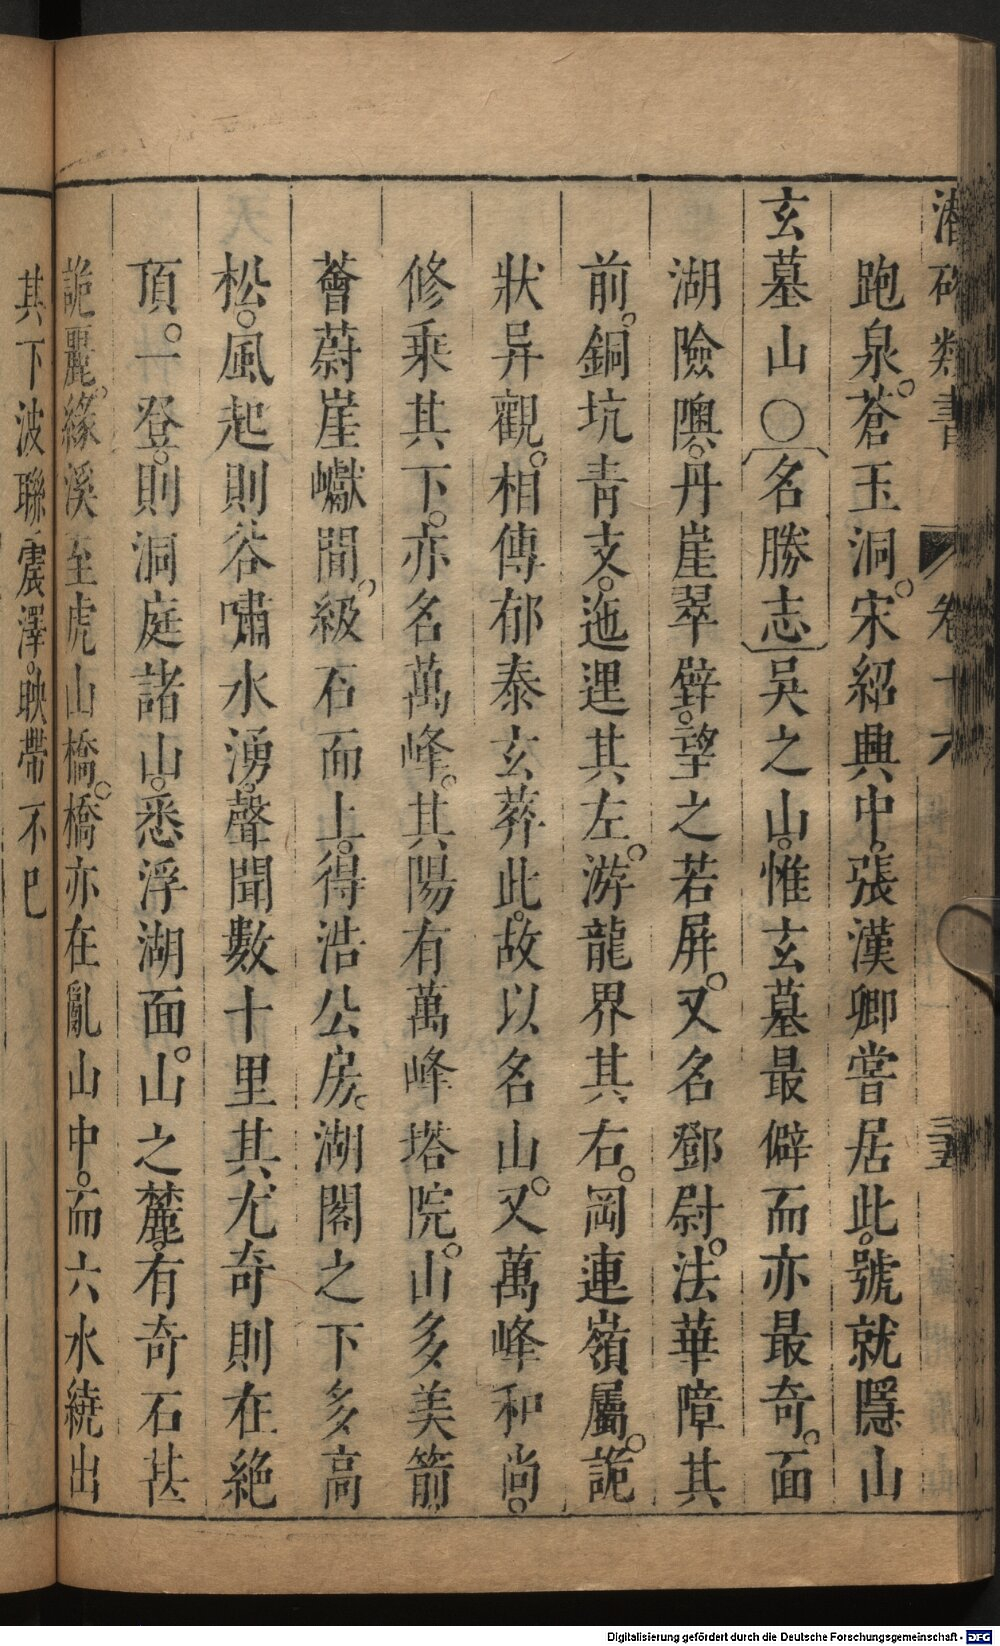 潛確類書 卷十六 三五
跑泉。蒼玉洞。宋紹興中。張漢卿嘗居此。號就隱山
玄墓山〇〔名勝志〕吳之山。惟玄墓最僻而亦最奇。面
湖險隩。丹崖翠壁。望之若屏。又名鄧尉。法華障其
前。銅坑青支。迤𨓦其左。游龍界其右。岡連嶺屬。詭
狀异觀。相傳郁泰玄葬此。故以名山。又萬峰和尚。
修乘其下。亦名萬峰。其陽有萬峰塔院。山多美箭
薈蔚崖巘間。級石而上。得浩公房。湖閣之下多高
松。風起則谷嘯水湧。聲聞數十里其尤奇則在絕
頂。一登。則洞庭諸山。悉浮湖面。山之麓。有奇石甚
詭麗。緣溪至虎山橋。橋亦在亂山中。而六水繞出
其下波聯震澤。映帶不已
Digitalisierung gefördert durch die Deutsche Forschungsgemeinschaft - DFG